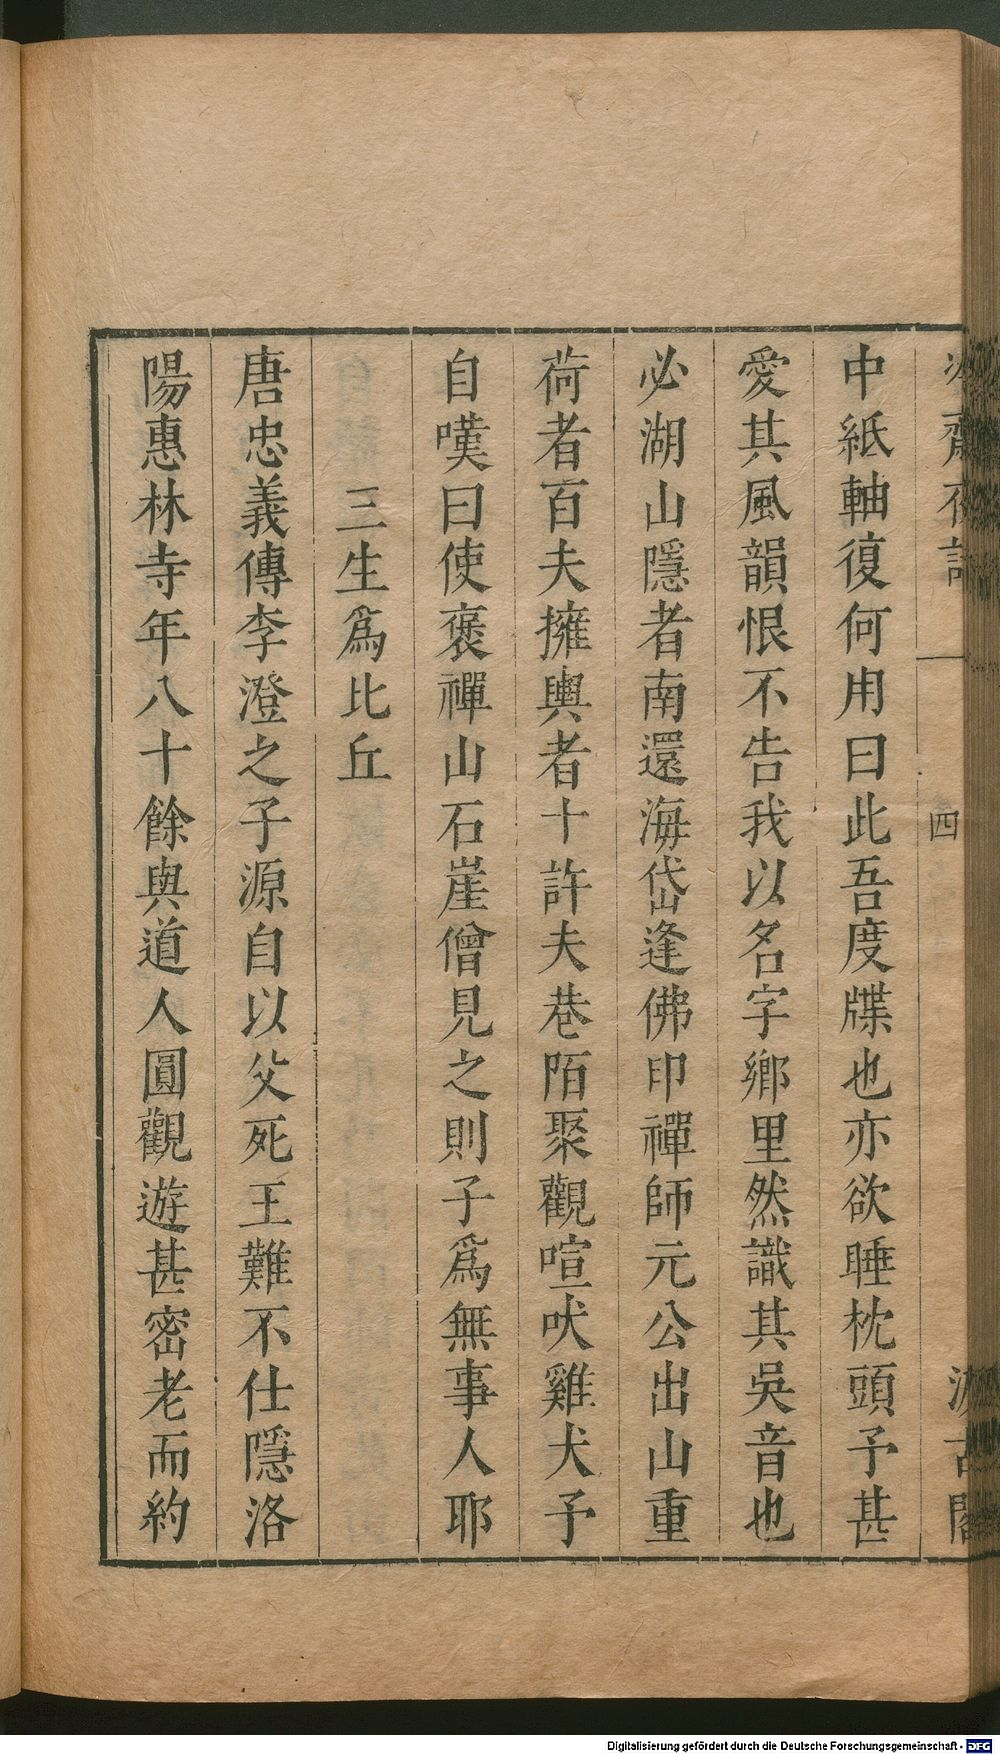 冷齋夜話
四
汲古閣
中紙軸復何用曰此吾度牒也亦欲睡枕頭予甚
愛其風韻恨不告我以名字鄉里然識其吳音也
必湖山隱者南還海岱逢佛印禪師元公出山重
荷者百夫擁輿者十許夫巷陌聚觀喧吠雞犬予
自嘆曰使褒禪山石崖僧見之則子爲無事人耶
三生爲比丘
唐忠義傳李澄之子源自以父死王難不仕隱洛
陽惠林寺年八十餘與道人圓觀遊甚密老而約
Digitalisierung gefördert durch die Deutsche Forschungsgemeinschaft - DFG